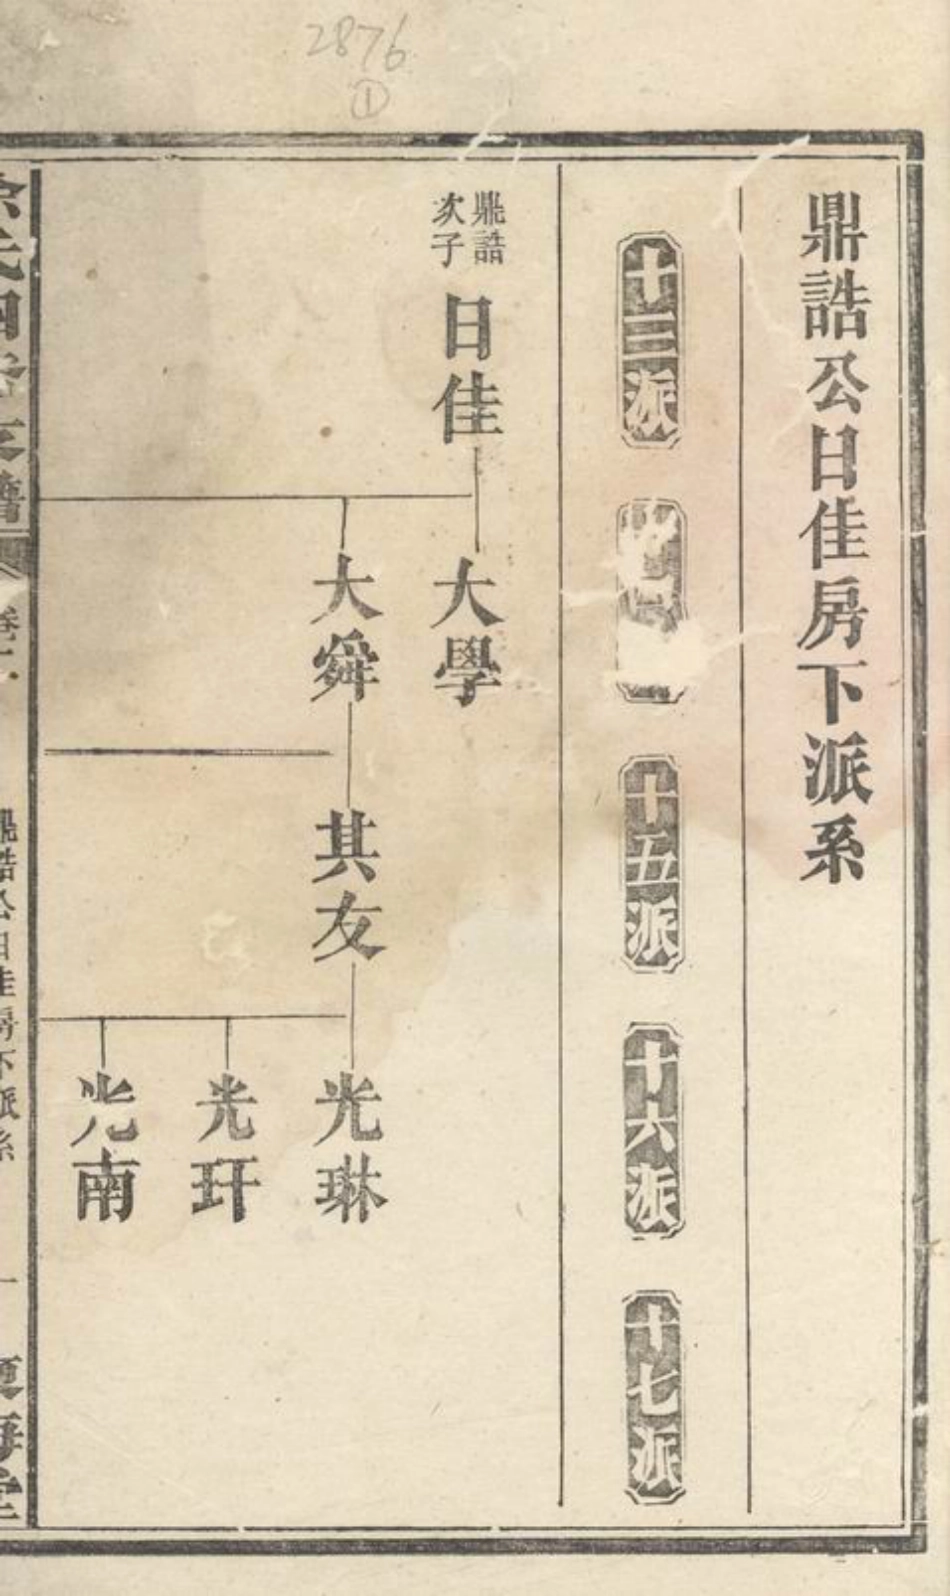 2876
①
鼎誥公日佳房下派系
十三派
十五派
十六派
十七派
鼎誥
次子
日佳
大學
大舜
其友
光琳
光玕
光南
鼎誥公日佳房下派系
一